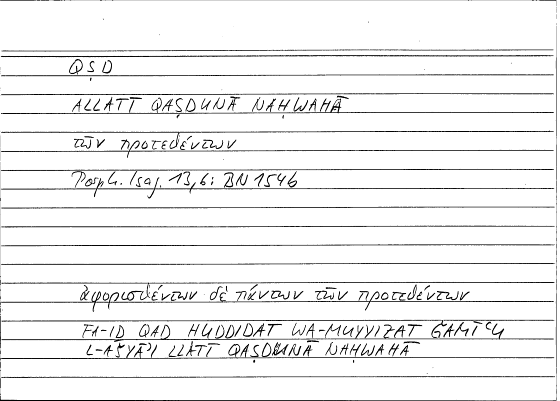 QṢD
ALLATĪ QAṢDUNĀ NAḤWAHĀ
τῶν προτεθέντων
Porph. Isag. 13,6: BN 154b
ἀφορισθέντων δὲ πάντων τῶν προτεθέντων
FA-IḎ QAD ḤUDDIDAT WA-MUYYIZAT ǦAMĪʿU
L-AŠYĀʾI LLATĪ QAṢDUNĀ NAḤWAHĀ